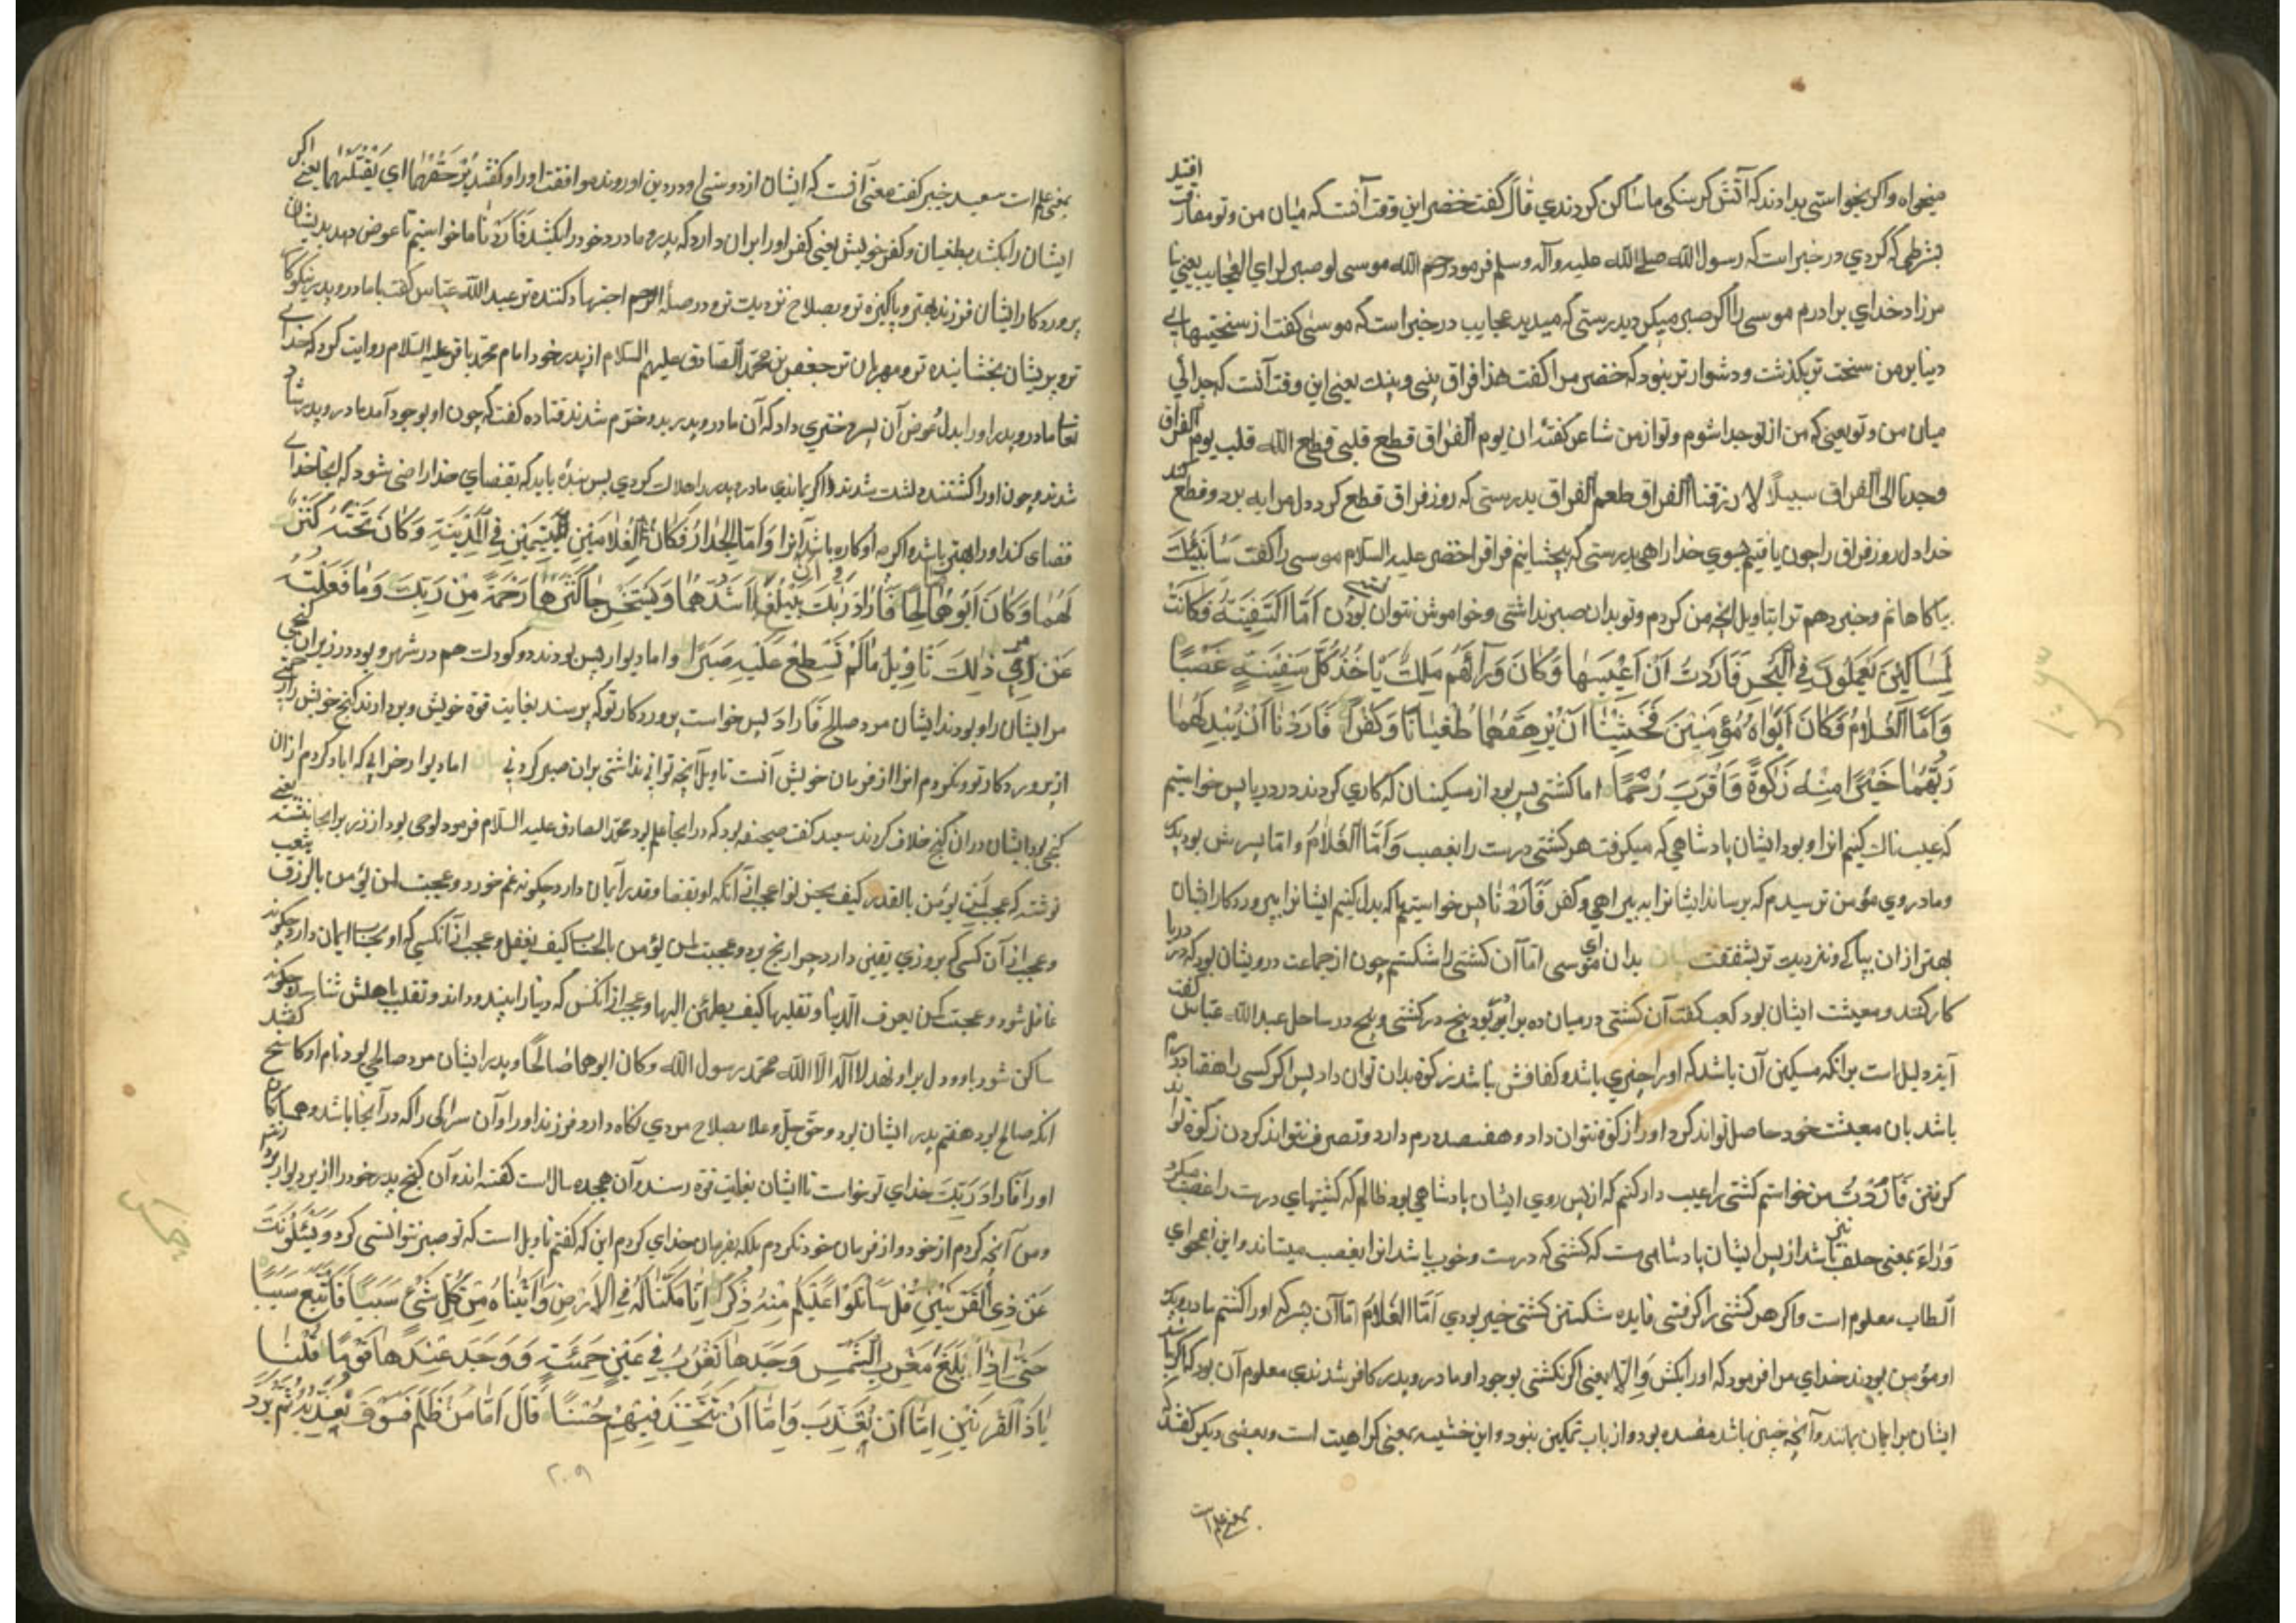 میخواه واکر بخواستی بدادند که آتش کرسنکی ما ساکن کردندي قَالَ گفت خضر این وقت آنست که میان من و تو مفارقت افتد
بشرطی که کردي در خبر است که رسول الله صلی الله علیه وآله وسلم فرمود رحم الله موسی لو صبر لراي العجایب یعنی با
مرزاد خداي برادرم موسی را اکر صبر میکرد بدرستی که میدید عجایب در خبر است که موسی گفت از سختیهاي
دنیا بر من سخت تر بکذشت و دشوارتر نبود که خضر مرا کفت هذا فراق بینی وبینك یعنی این وقت آنست که جدائی
میان من و تو یعنی که من از تو جدا شوم و تو از من شاعر کفته ان یوم الفراق قطع قلبی قطع الله قلب یوم الفراق
وجدنا الی الفراق سبیلًا لا رزقنا الفراق طعم الفراق بدرستی که روز فراق قطع کرد دل مرا ببرد و قطع کند
خدا دل روز فراق را چون یافتیم بسوي خدا راهی بدرستی که بچشانیم فراق را خضر علیه السلام موسی را کفت سَاُنَبِّئُكَ
بیاکاهانم و خبر دهم ترا بتاویل انچه من کردم و تو بدان صبر نداشتی و خواموش نتوان بودن اَمَّا السَّفِینَةُ فَکَانَتْ
لِمَسَاکِینَ یَعْمَلُونَ فِی الْبَحْرِ فَاَرَدْتُ اَنْ اَعِیبَهَا وَکَانَ وَرَآءَهُمْ مَلِكٌ یَاْخُذُ کُلَّ سَفِینَةٍ غَصْبًا
وَاَمَّا الْغُلَامُ فَکَانَ اَبَوَاهُ مُؤْمِنَیْنِ فَخَشِینَا اَنْ یُرْهِقَهُمَا طُغْیَانًا وَکُفْرًا فَاَرَدْنَا اَنْ یُبْدِلَهُمَا
رَبُّهُمَا خَیْرًا مِنْهُ زَکٰوةً وَاَقْرَبَ رُحْمًا اما کشتی پس بود از مسکینان که کاري کردند در دریا پس خواستیم
که عیب ناك کنیم انرا و بود ایشان پادشاهی که میکرفت هر کشتی درست را بغصب وَاَمَّا الْغُلَامُ و امّا پسرش بود پدر
و مادر وي مؤمن ترسیدم که برساند ایشانرا به بیراهی و کفر فَاَرَدْنَا پس خواستیم ما که بدل کنیم ایشانرا پروردکار ایشان
بهتر از ان بپاکی و نزدیت تر بشفقت بدان اي موسی امّا آن کشتی را شکستم چون از جماعت درویشان بود که در دریا
کار کنند و معیشت ایشان بود کعب کفت آن کشتی در میان ده برادر بود پنج در کشتی و پنج در ساحل عبد الله عبّاس کفت
آیه دلیل است بر انکه مسکین آن باشد که او را چیزي باشد و کفافش نباشد زکوة بدان توان داد پس اکر کسی را هفتاد درم
باشد بان معیشت خود حاصل تواند کرد او را زکوة نتوان داد و هفتصد درم دارد و تصرف نتواند کردن زکوة تواند
کرفتن فَاَرَدْتُ من خواستم کشتی را عیب دار کنم که از پس روي ایشان پادشاهی بود ظالم که کشتیهاي درست را غصب میکرد
وَرَاءَ بمعنی خلف نیز باشد از پس ایشان پادشاهست که کشتی که درست و خوب باشد انرا بغصب میستاند و این فحواي
الطاب معلوم است و اکر هر کشتی را کرفتی فایده شکستن کشتی خیر بودي اَمَّا الْغُلَامُ امّا آن پسر که او را کشتم مادر و پدر
او مؤمن بودند خداي مرا فرمود که او را بکش وَاِلّا یعنی اکر نکشتی بوجود او مادر و پدر کافر شدندي معلوم آن بود که اکر باشد
ایشان بر ایمان بمانند و آنچه چنین باشد مفسده بود و از باب تمکین نبود و این خشیه بمعنی کراهیت است و بعضی دیکر کفتند که
بمعنی علم است
بمعنی علم است سعید جبیر کفت معنی آنست که ایشان از دوستی او در دین او روند موافقت او را و کفتند یُرْهِقَهُمَا اي یَقْتُلَهُمَا یعنی اکر
ایشان را بکشد بطغیان و کفر خویش یعنی کفر او را بران دارد که پدر و مادر خود را بکشد فَاَرَدْنَا ما خواستیم تا عوض دهد بدیشان
پروردکار ایشان فرزند بهتر و پاکیزه تر و بصلاح نزدیت تر و در صلۀ الرحم اجتهاد کننده تر عبد الله عبّاس کفت با مادر و پدر نیکوکار
تر و بریشان بخشاینده تر و مهربان تر جعفر بن محمّد الصّادق علیهم السّلام از پدر خود امام محمّد باقر علیه السّلام روایت کرد که خداي
تعالی مادر و پدر او را بدل عوض آن پسر دختري داد که آن مادر و پدر بدو خرّم شدند قتاده کفت که چون او بوجود آمد مادر و پدر شاد
شدند و چون او را کشتند دلشت شدند و اکر بماندي مادر و پدر را هلاك کردي پس بنده باید که بقضاي خدا راضی شود که انجا خداي
قضای کند او را بهتر باشد و اکرچه او کاره باشد آنرا وَاَمَّا الْجِدَارُ فَکَانَ لِغُلَامَیْنِ یَتِیمَیْنِ فِی الْمَدِینَةِ وَکَانَ تَحْتَهُ کَنْزٌ
لَهُمَا وَکَانَ اَبُوهُمَا صَالِحًا فَاَرَادَ رَبُّكَ اَنْ یَبْلُغَا اَشُدَّهُمَا وَیَسْتَخْرِجَا کَنْزَهُمَا رَحْمَةً مِنْ رَبِّكَ وَمَا فَعَلْتُهُ
عَنْ اَمْرِي ذٰلِكَ تَاْوِیلُ مَا لَمْ تَسْطِعْ عَلَیْهِ صَبْرًا و اما دیوار پس بودند دو کودك هم در شهر و بود در زیر ان کنجی
مر ایشان را و بود ندا ایشان مرد صالح فَاَرَادَ پس خواست پروردکار تو که برسند بغایت قوة خویش و بردارند کنج خویش را رحمتی
از پروردکار تو و نکردم انرا از فرمان خویش آنست تاویل آنچه توانی نداشتی بران صبر کردنی اما دیوار خرابی که اباد کردم از ان
کنجی بود ایشان دران کنج خلاف کردند سعید کفت صحیفه بود که در انجا علم بود محمّد الصادق علیه السلام فرمود لوحی بود از زر برانجا نبشته
نوشته که عجب لمن یؤمن بالقدر کیف یحزن لواعجبا از آنکه او بقضا و قدر آیمان دارد چکونه غم خورد و عجبت لمن یؤمن بالرزق یتعب
وعجب از آن کسی که بروزي یقین دارد چرا رنج برد وعجبت لمن یؤمن بالحساب کیف یغفل وعجب از آنکسی که او بحساب ایمان دارد چکونه
غافل شود وعجبت لمن یعرف الدّنیا وتقلبها کیف یطمئن الیها وعجب از انکس که دنیا را بیند و داند وتقلب باهلش چکونه
ساکن شود باو و دل براو نهد لا آله الّا الله محمّد رسول الله وکان ابوهما صالحًا وپدر ایشان مرد صالحی بود نام او کاشح کفتند
انکه صالح بود هفتم پدر ایشان بود و حق جلّ وعلا بصلاح مردي نکاه دارد فرزند او را و آن سراي را که در آنجا باشد و همسایکان
او را فَاَرَادَ رَبُّكَ خداي تو خواست تا ایشان بغایت قوة رسند و آن هجده سال است کفته اند و آن کنج پدر خود را از زیر دیوار بردارند
و من آنچه کردم از خود و از فرمان خود نکردم بلکه بفرمان خداي کردم این که کفتم تاویل است که تو صبر نتوانستی کرد وَیَسْئَلُونَكَ
عَنْ ذِی الْقَرْنَیْنِ قُلْ سَاَتْلُوا عَلَیْکُمْ مِنْهُ ذِکْرًا اِنَّا مَکَّنَّا لَهُ فِی الْاَرْضِ وَاٰتَیْنَاهُ مِنْ کُلِّ شَیْءٍ سَبَبًا فَاَتْبَعَ سَبَبًا
حَتّٰی اِذَا بَلَغَ مَغْرِبَ الشَّمْسِ وَجَدَهَا تَغْرُبُ فِی عَیْنٍ حَمِئَةٍ وَوَجَدَ عِنْدَهَا قَوْمًا قُلْنَا
یَاذَا الْقَرْنَیْنِ اِمَّا اَنْ تُعَذِّبَ وَاِمَّا اَنْ تَتَّخِذَ فِیهِمْ حُسْنًا قَالَ اَمَّا مَنْ ظَلَمَ فَسَوْفَ نُعَذِّبُهُ ثُمَّ یُرَدُّ
۲۰۹